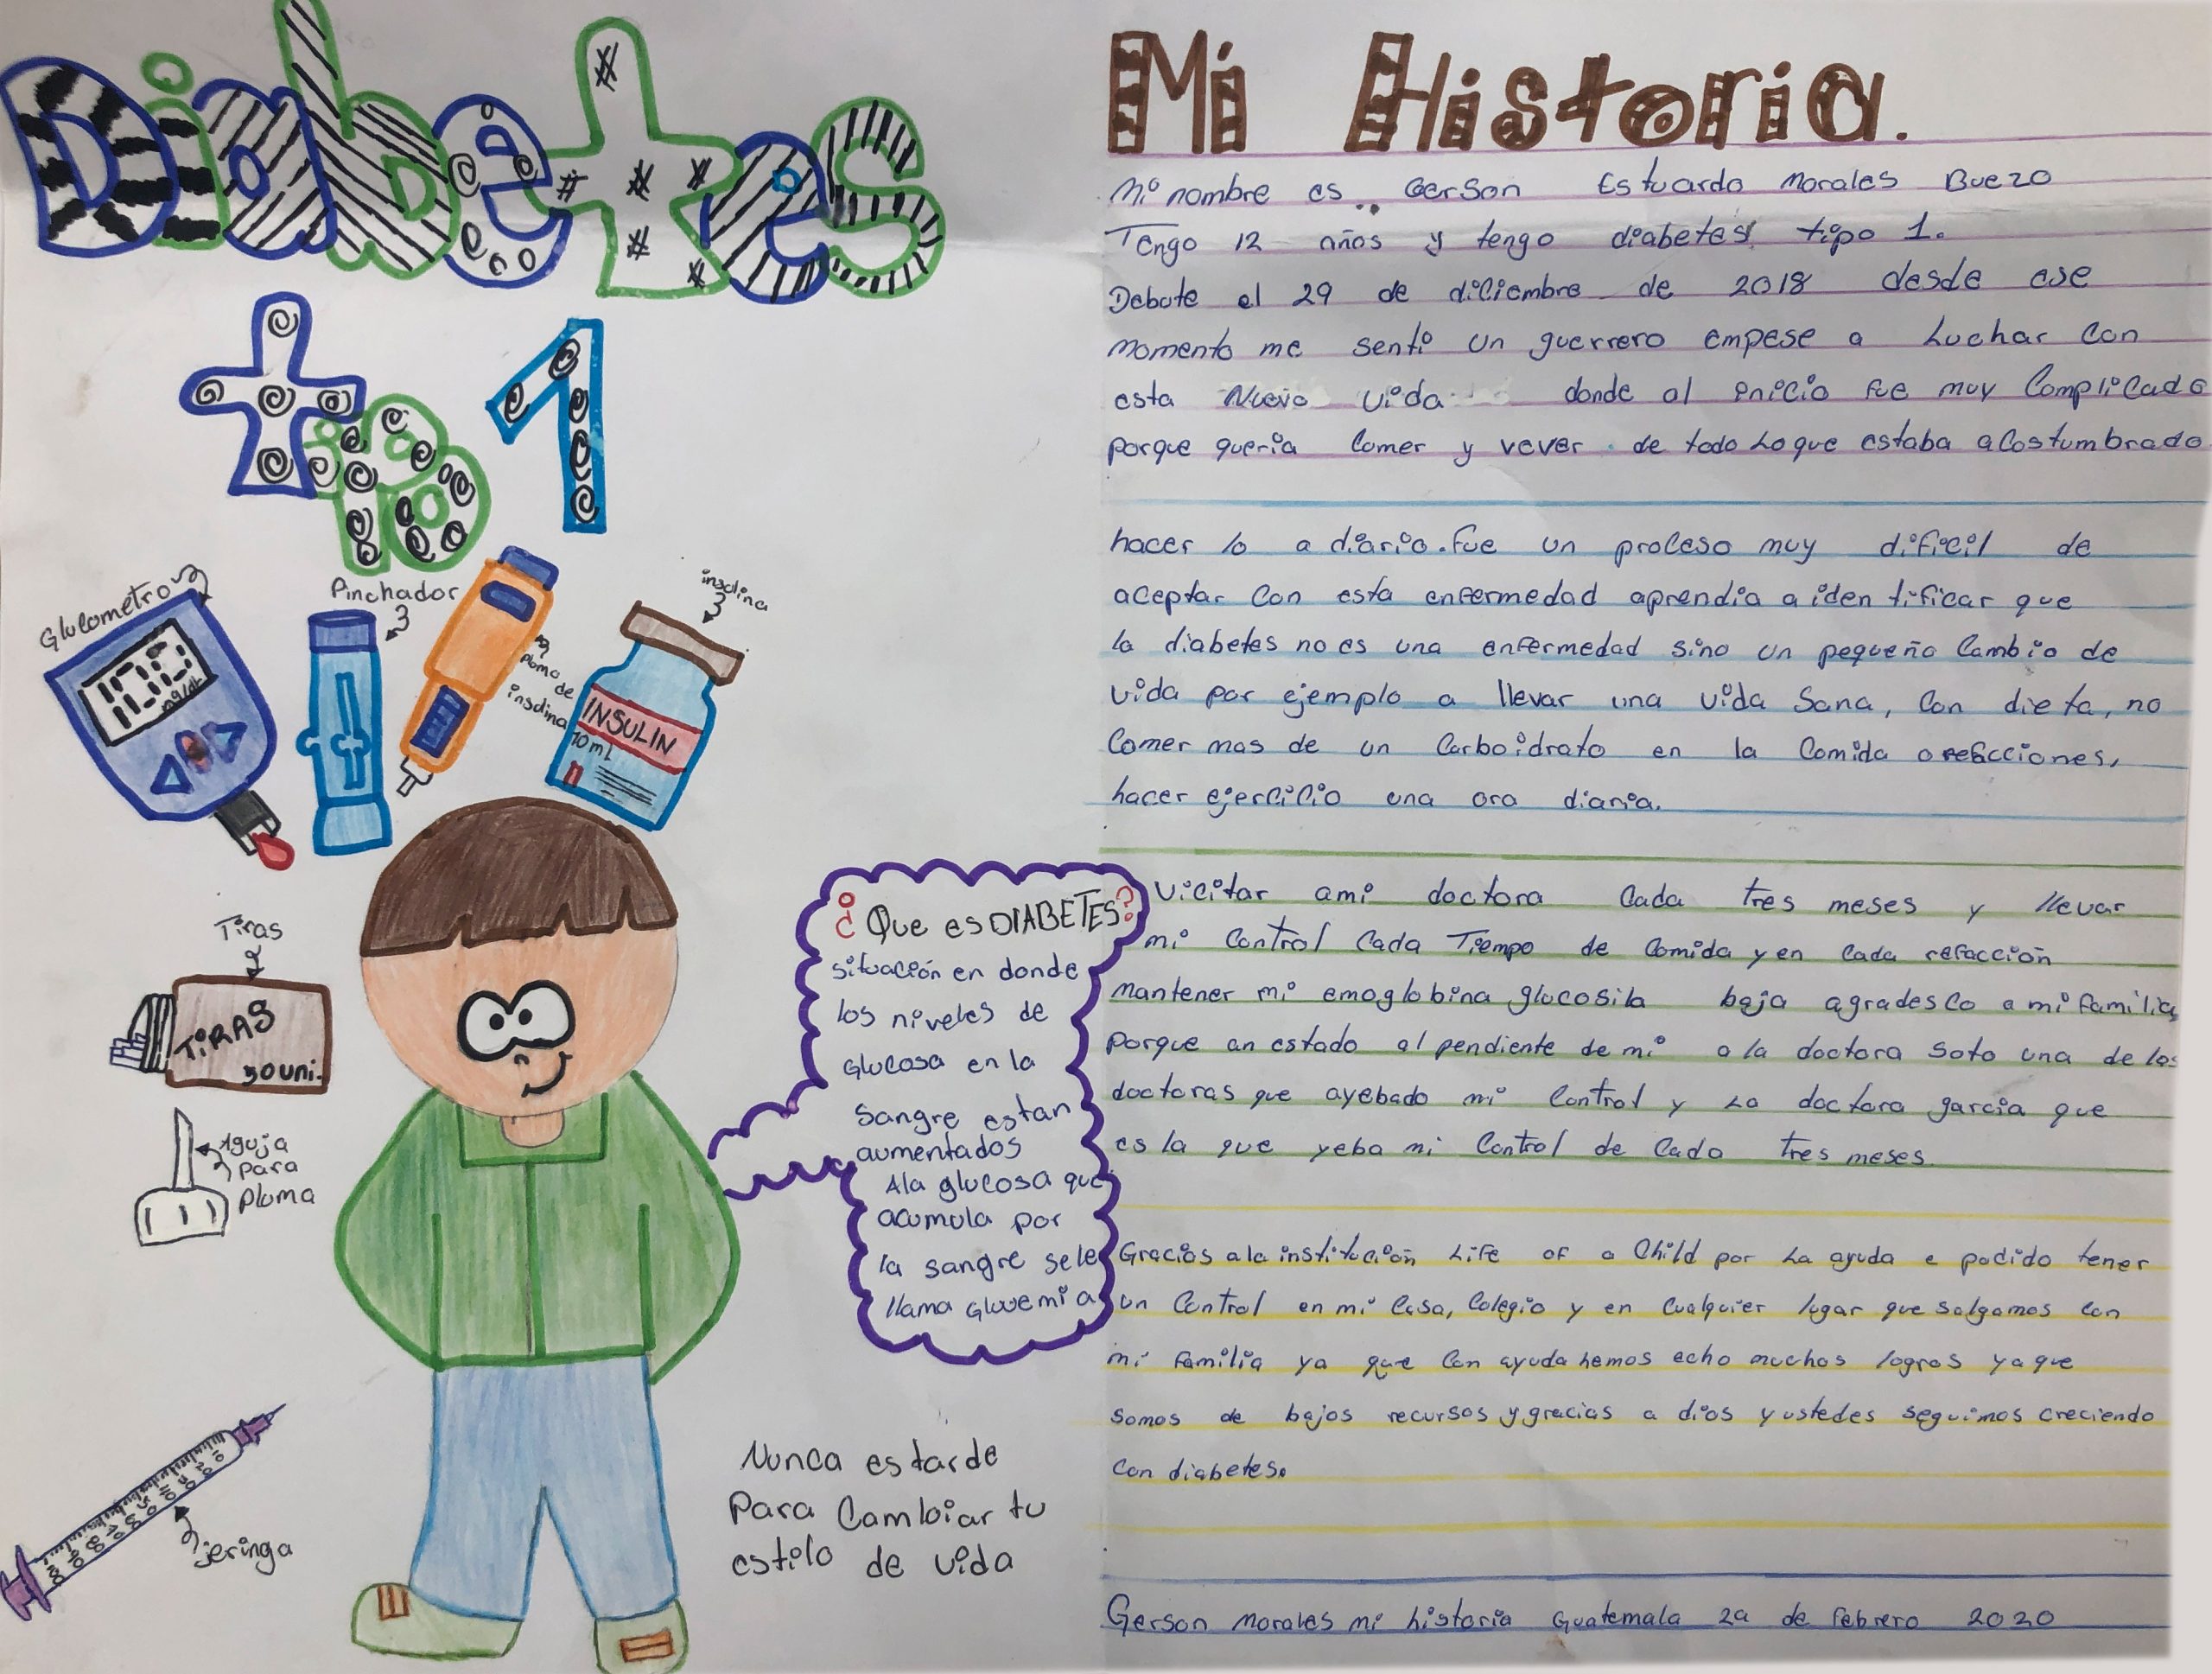 Diabetes
tipo 1
Glucometro
100
mg/dL
Pinchador
pluma de
insulina
insulina
INSULIN
10 mL
Tiras
TIRAS
50 uni.
Aguja
para
pluma
jeringa
¿Que es DIABETES?
situación en donde
los niveles de
glucosa en la
sangre estan
aumentados
Ala glucosa que
acumula por
la sangre sele
llama glucemia
Nunca es tarde
Para Cambiar tu
estilo de vida
Mi Historia.
Mi nombre es Gerson Estuardo Morales Buezo
Tengo 12 años y tengo diabetes tipo 1.
Debute el 29 de diciembre de 2018 desde ese
momento me senti un guerrero empese a Luchar Con
esta Nueva vida donde al inicio fue muy Complicado
porque queria Comer y vever de todo Lo que estaba acostumbrado
hacer lo a diario. fue un proceso muy dificil de
aceptar Con esta enfermedad aprendia a identificar que
la diabetes no es una enfermedad sino un pequeño Cambio de
vida por ejemplo a llevar una vida Sana, Con dieta, no
Comer mas de un Carboidrato en la Comida o refacciones,
hacer ejercicio una ora diaria.
vicitar ami doctora Cada tres meses y llevar
mi Control Cada Tiempo de Comida y en Cada refacción
mantener mi emoglobina glucosila baja agradesco a mi familia
Porque an estado al pendiente de mi a la doctora Soto una de las
doctoras que ayebado mi Control y La doctora garcia que
es la que yeba mi Control de Cada tres meses.
Gracias a la institución Life of a Child por La ayuda e podido tener
un Control en mi Casa, Colegio y en Cualquier lugar que salgamos con
mi familia ya que Con ayuda hemos echo muchos logros ya que
Somos de bajos recursos y gracias a dios y ustedes seguimos creciendo
Con diabetes.
Gerson morales mi historia Guatemala 29 de febrero 2020